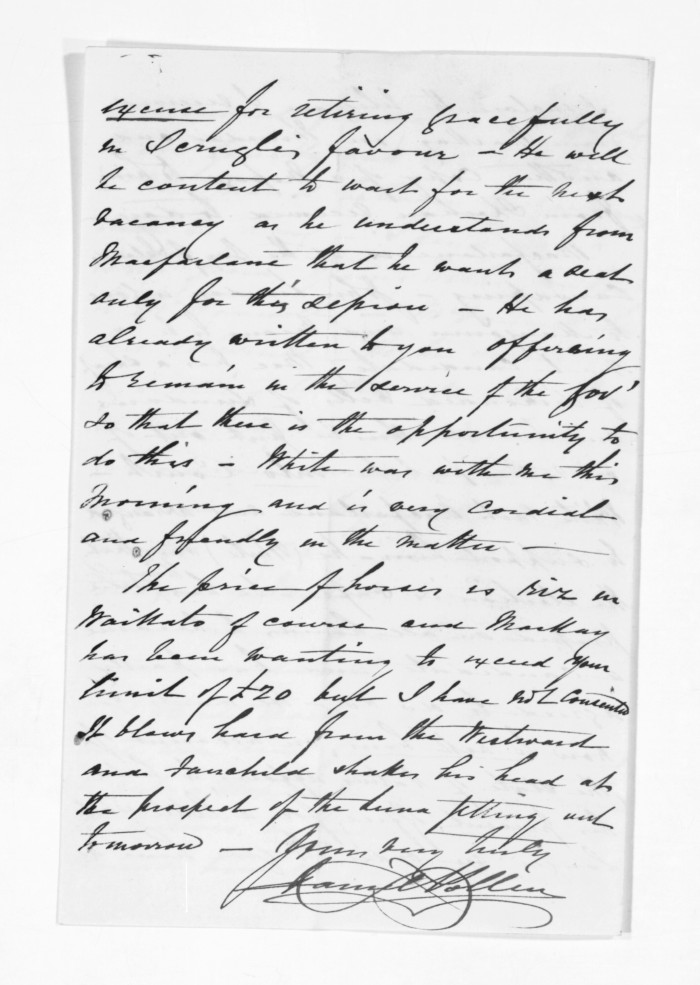 excuse for retiring gracefully
in Scrugli's favour – He will
be content to wait for the next
vacancy as he understands from
Macfarlane that he wants a seat
only for this session – He has
already written to you offering
to remain in the service of the Gov't
so that there is the opportunity to
do this – White was with me this
morning and is very cordial
and friendly in the matter –
The price of horses is riz in
Waikato of course and Mackay
has been wanting to exceed your
limit of £20 but I have not consented
It blows hard from the Westward
and Fairchild shakes his head at
the prospect of the Luna getting out
tomorrow – Yours very truly
Daniel Pollen